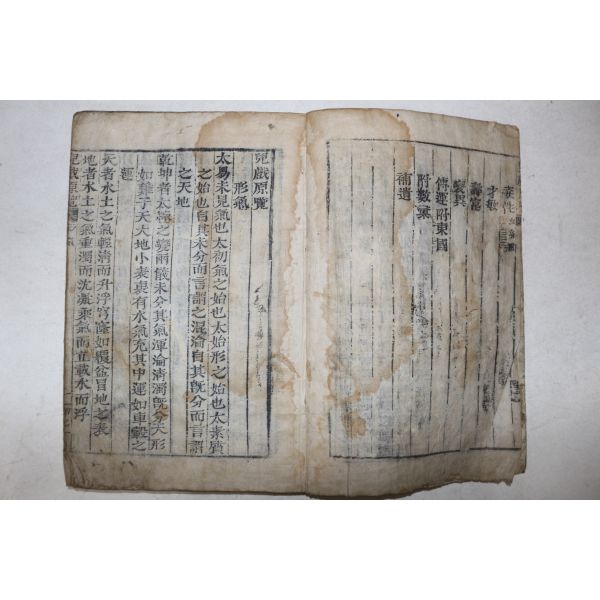 才敏
壽富
變異
傳運附東國
附數彙
補遺
兒戲原覽
形氣
太易未見氣也太初氣之始也太始形之始也太素質
之始也自其未分而言謂之混淪自其旣分而言謂
之天地
乾坤者太極之變兩儀未分其氣渾淪淸濁旣分天形
如雞子天大地小表裏有水氣充其中運如車轂之
運
天者水土之氣輕淸而升浮穹窿如覆盆冒地之表
地者水土之氣重濁而沈凝乘氣而立載水而浮
兒戲原覽